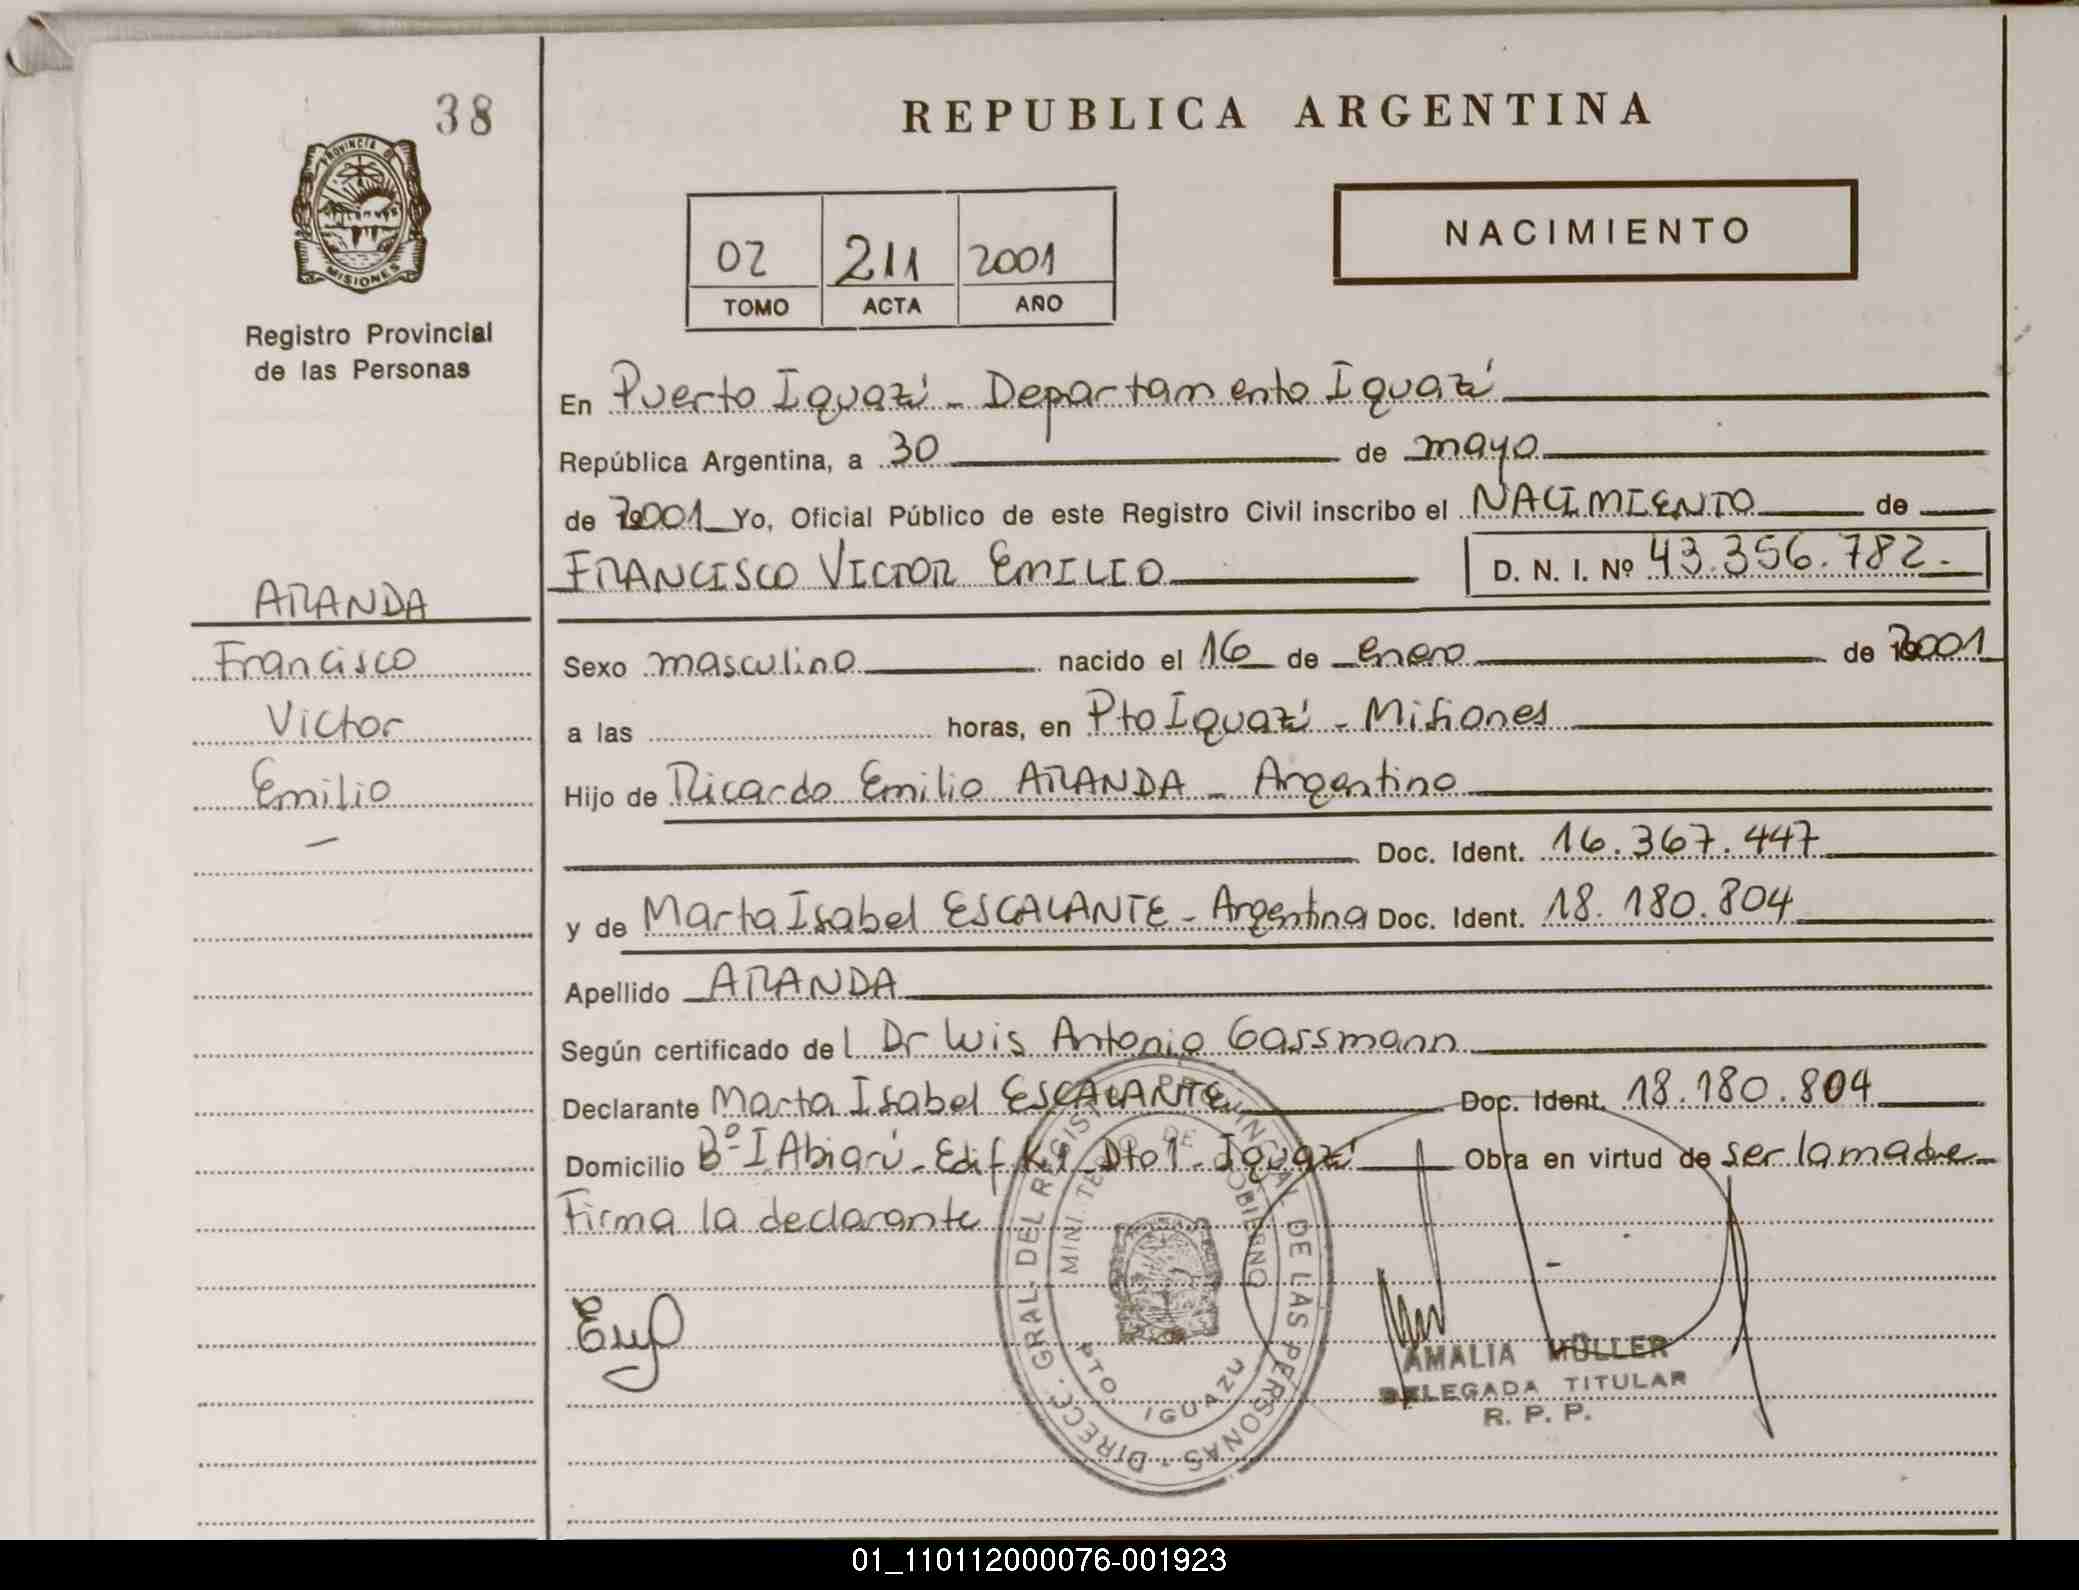 38
REPUBLICA ARGENTINA
PROVINCIA DE
MISIONES
Registro Provincial
de las Personas
02 211 2001
TOMO ACTA AÑO
NACIMIENTO
En Puerto Iguazú - Departamento Iguazú
República Argentina, a 30 de mayo
de 2001 Yo, Oficial Público de este Registro Civil inscribo el NACIMIENTO de
FRANCISCO VICTOR EMILIO D. N. I. Nº 43.356.782.-
ARANDA
Francisco
Victor
Emilio
Sexo masculino nacido el 16 de Enero de 2001
a las horas, en Pto Iguazú - Misiones
Hijo de Ricardo Emilio ARANDA - Argentino
Doc. Ident. 16.367.447
y de Marta Isabel ESCALANTE - Argentina Doc. Ident. 18.180.804
Apellido ARANDA
Según certificado del Dr Luis Antonio Gassmann
Declarante Marta Isabel ESCALANTE Doc. Ident. 18.180.804
Domicilio Bº I Abiarú - Edif K1 - Dto 1 - Iguazú Obra en virtud de ser la madre
Firma la declarante
DIRECC. GRAL. DEL REGIST. PROVINCIAL DE LAS PERSONAS
MINISTERIO DE GOBIERNO
PTO. IGUAZU
AMALIA MÜLLER
DELEGADA TITULAR
R. P. P.
01_110112000076-001923